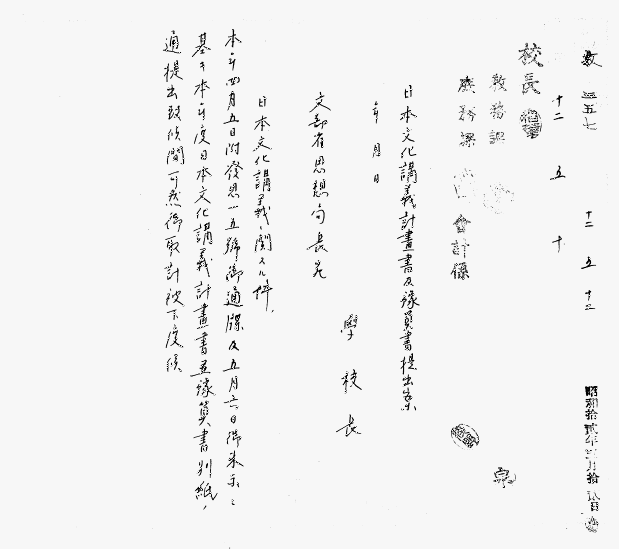 教 三五七 十二 五 十二
十二 五 十
校長
教務課
庶務課 會計係
日本文化講義計畫書及豫算書提出案
年 月 日
學校長
文部省思想局長宛
日本文化講義ニ關スル件
本年四月五日附發思一五號御通牒及五月六日御来示ニ
基キ本年度日本文化講義計畫書並豫算書別紙ノ
通提出致候間可然御取計被下度候